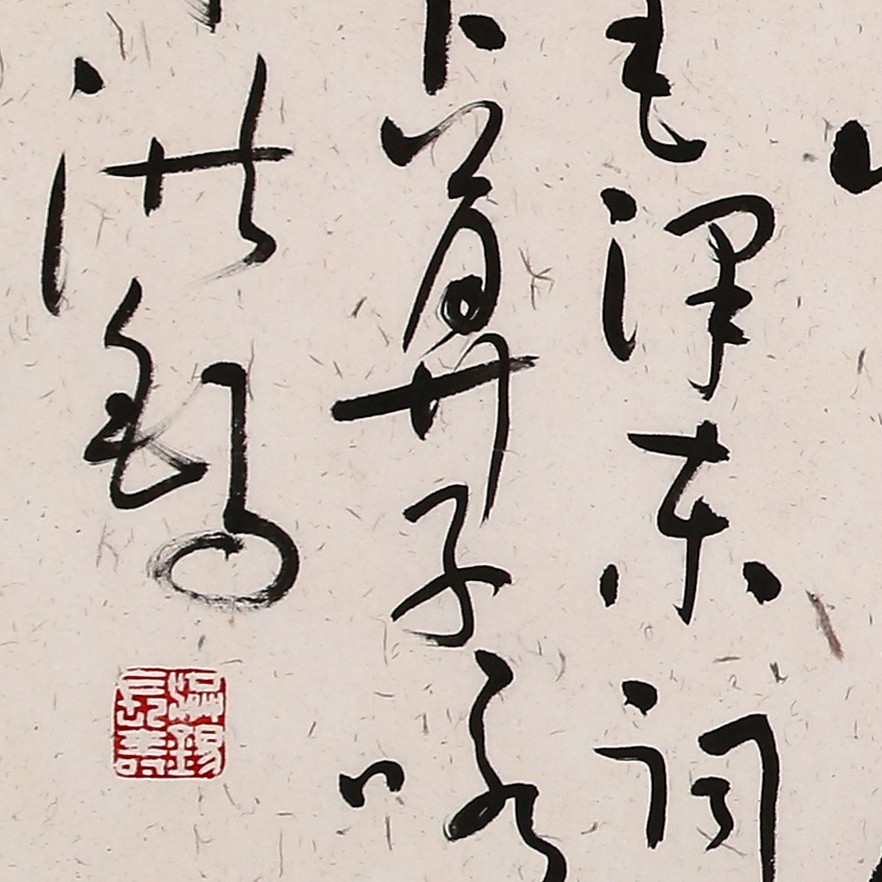 毛泽东词
卜算子咏
洪